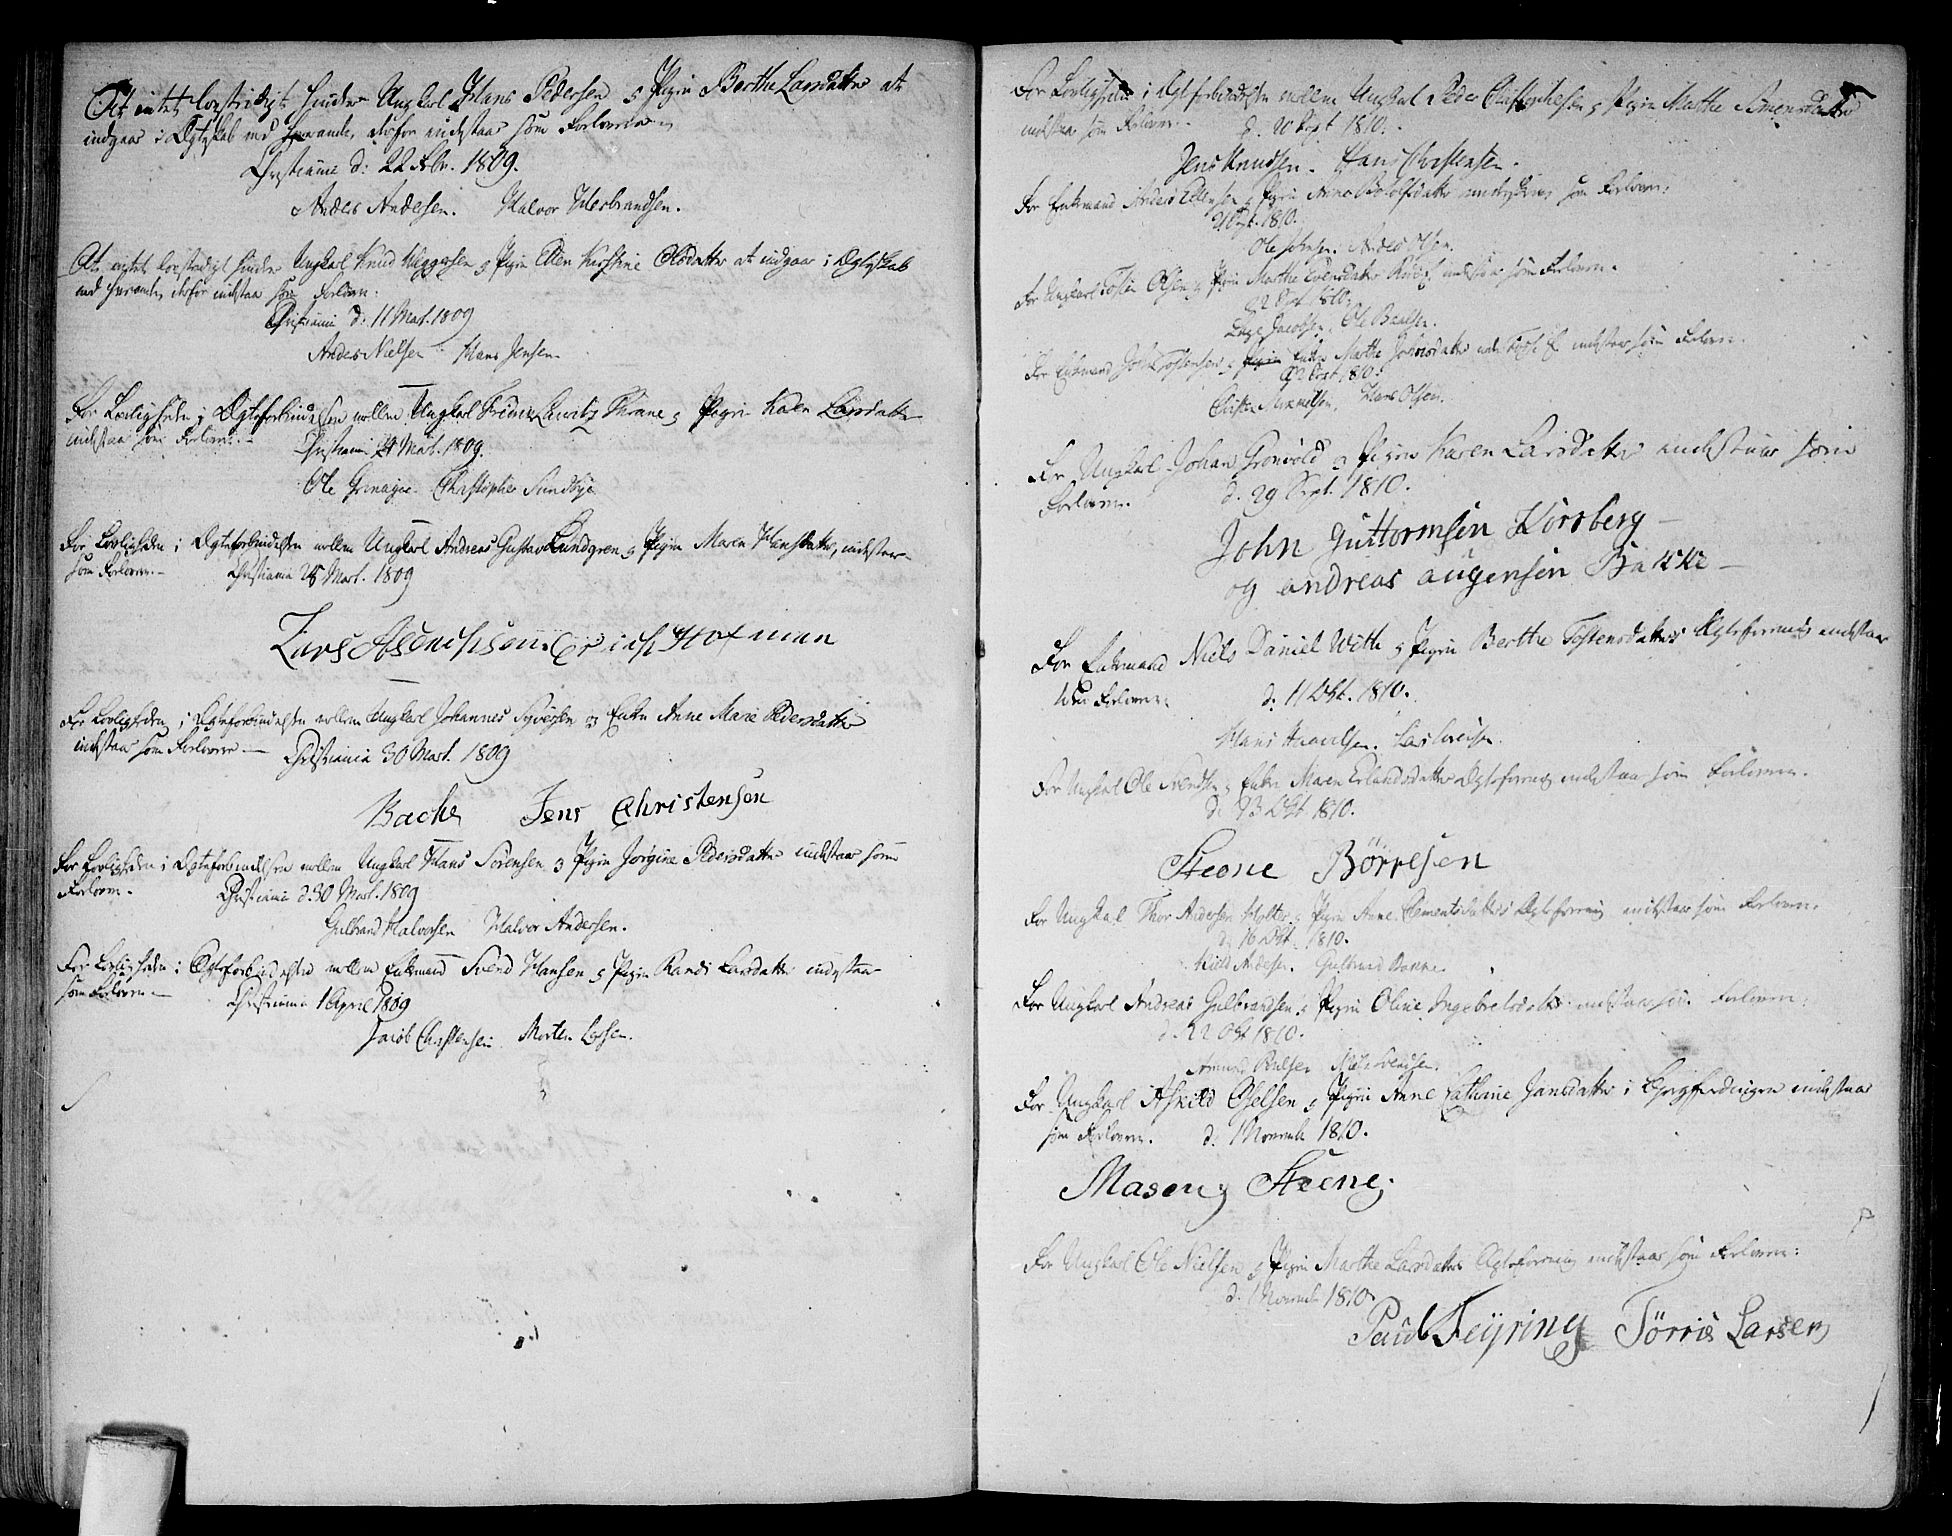 At intet lovstridigt hindrer Ungkarl Hans Pedersen og Pigen Berthe Larsdatter at
indgaae i Ægteskab med hverandre, derfor indestaar som Forlovere
Christiania d: 22 Febr. 1809.
Anders Andersen. Halvor Herbrandsen.
At intet lovstridigt hindrer Ungkarl Knud Wiggersen og Pigen Ellen Kirstine Olsdatter at indgaae i Ægteskab
med hverandre, derfor indestaar som Forlovere:
Christiania d: 11 Mart. 1809
Anders Nielsen Hans Jensen
For Lovligheden i Ægteforbindelsen mellem Ungkarl Lauritz Thrane og Pigen Karen Larsdatter
indestaar som Forlovere.
Christiania Mart. 1809.
Ole Christopher Sundbye
For Lovligheden i Ægteforbindelsen mellem Ungkarl Andreas Gustav Lundgren og Pigen Maren Hansdatter, indestaar
som Forlovere. Christiania 25 Mart. 1809
Lars Erich Hofman
For Lovligheden i Ægteforbindelsen mellem Ungkarl Johannes Syversen og Enken Anne Marie Pedersdatter
indestaar som Forlovere Christiania 30 Mart. 1809
Bache Jens Christensen
For Lovligheden i Ægteforbindelsen mellem Ungkarl Hans Sörensen og Pigen Jörgine Pedersdatter indestaar som
Forlovere. Christiania d. 30 Mart. 1809
Gulbrand Halvorsen Halvor Andersen.
For Lovligheden i Ægteforbindelsen mellem Enkemand Svend Hansen og Pigen Randi Larsdatter indestaar
som Forlovere. Christiania 1 April 1809
Jacob Christensen Morten Larsen.
For Lovligheden i Ægteforbindelsen mellem Ungkarl Peder Christophersen og Pigen Marthe Simensdatter
indestaar som Forlovere. d. 20 Sept 1810.
Jens Knudsen. Hans Christensen.
For Enkemand Anders Ellensen og Pigen Anne som Forlovere:
Sept. 1810.
Ole Anders Olsen.
For Ungkarl Olsen og Pigen Marthe indestaar som Forlovere.
22 Sept. 1810.
Jacobsen, Ole
For Enkemand John Tostensen og Enken Marthe indestaar som Forlovere.
1810.
Christen Hans Olsen.
For Ungkarl Johan Grönvold og Pigen Karen Larsdatter indestaar som
Forlovere. d. 29 Sept. 1810.
John Guttormsen Korsberg
og andreas augensen Bakke
For Enkemand Niels Daniel With og Pigen Berthe Tostensdatters Ægteforening indestaar
som Forlovere: d. 11 Oct. 1810.
Hans
For Ungkarl Ole Svendsen og Enken Maren Erlandsdatters Ægteforening indestaar som Forlovere.
d. 13 Oct 1810.
Steene Börresen
For Ungkarl Thor Andersen Holter og Pigen Anne Clementsdatters Ægteforening indestaar som Forlovere.
d. 16 Oct. 1810.
Kield Andersen. Gulbrand
For Ungkarl Andreas Gulbrandsen og Pigen Oline Ingebretsdatter indestaar som Forlovere.
d. 22 Oct 1810.
Amund Niels
For Ungkarl Askild Olsen og Pigen Anne Cathrine Jansdatter i indestaar
som Forlovere. d. 1 November 1810.
Maseng Steene.
For Ungkarl Ole Nielsen og Pigen Marthe Larsdatters Ægteforening indestaar som Forlovere:
d. 1 November 1810.
Paul Feÿring Törris Larsen